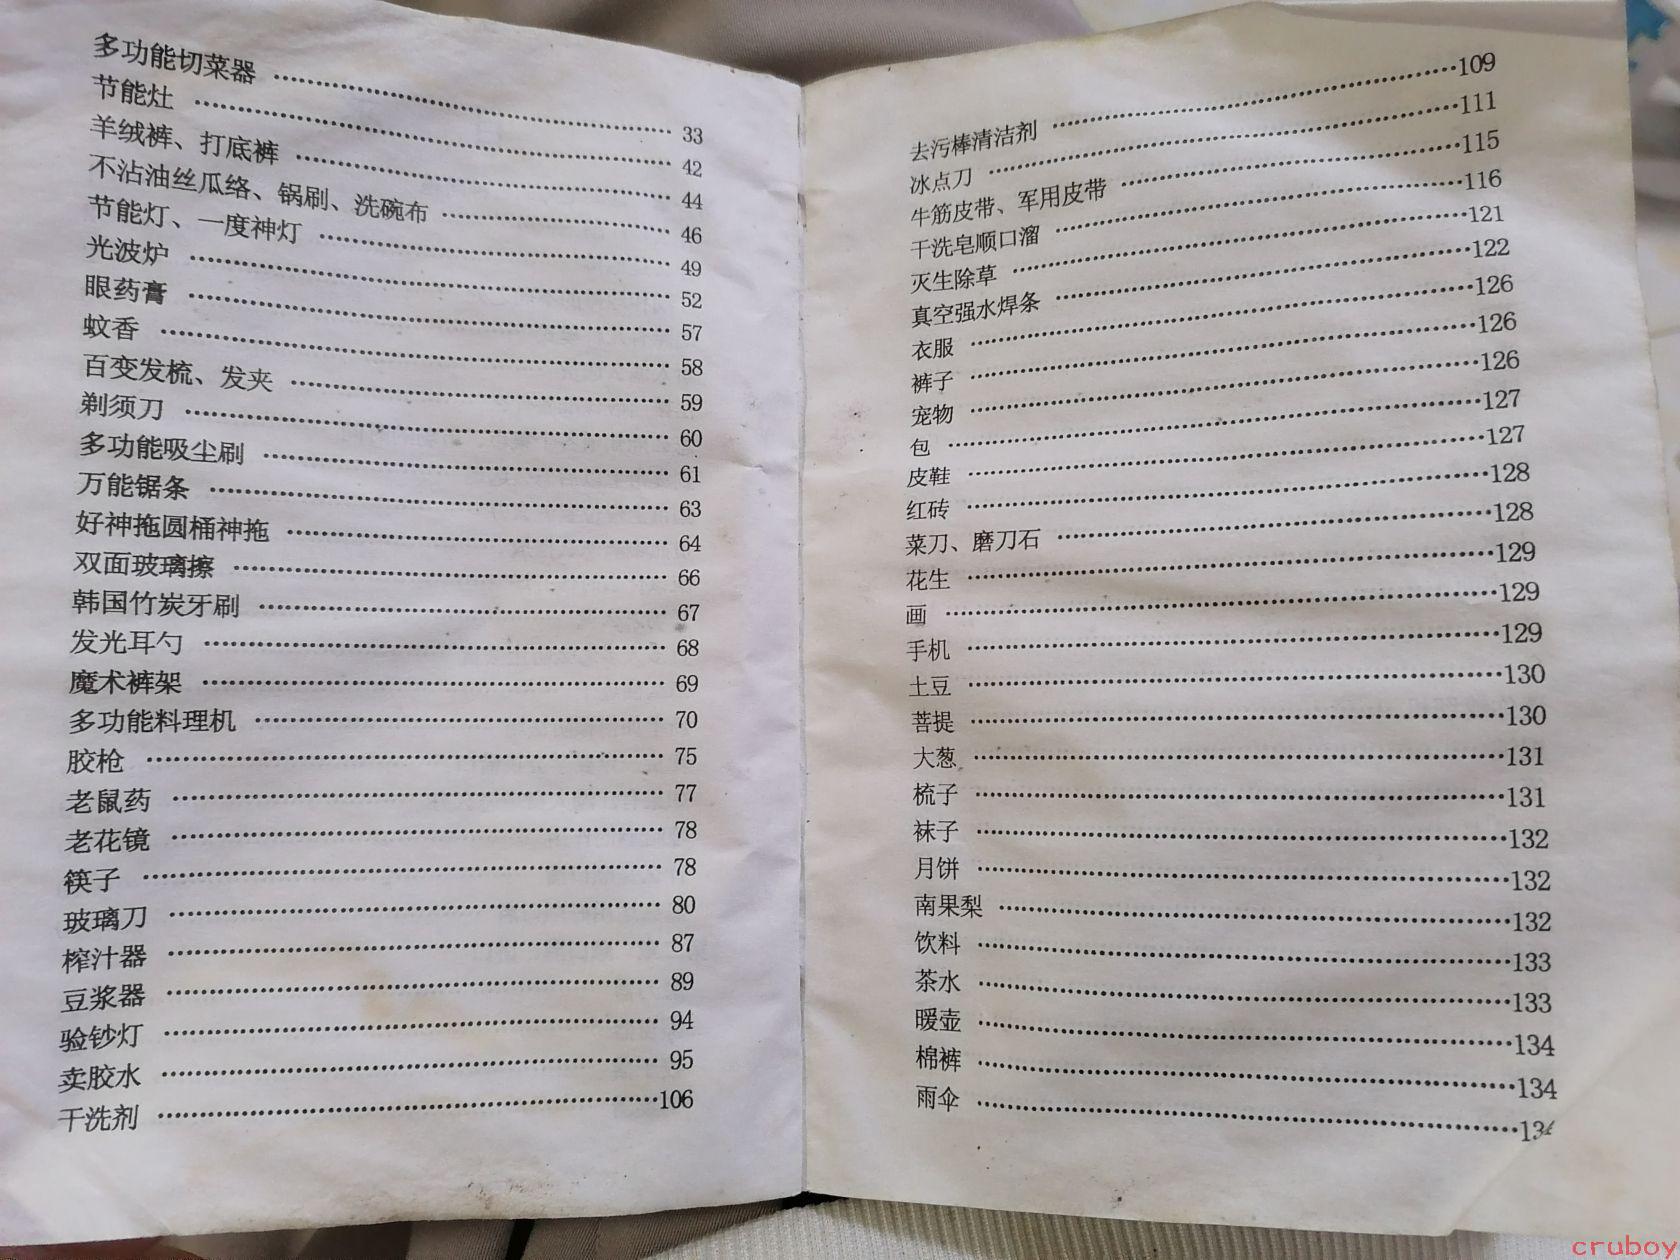 多功能切菜器 …… 33
节能灶 …… 42
羊绒裤、打底裤 …… 44
不沾油丝瓜络、锅刷、洗碗布 …… 46
节能灯、一度神灯 …… 49
光波炉 …… 52
眼药膏 …… 57
蚊香 …… 58
百变发梳、发夹 …… 59
剃须刀 …… 60
多功能吸尘刷 …… 61
万能锯条 …… 63
好神拖圆桶神拖 …… 64
双面玻璃擦 …… 66
韩国竹炭牙刷 …… 67
发光耳勺 …… 68
魔术裤架 …… 69
多功能料理机 …… 70
胶枪 …… 75
老鼠药 …… 77
老花镜 …… 78
筷子 …… 78
玻璃刀 …… 80
榨汁器 …… 87
豆浆器 …… 89
验钞灯 …… 94
卖胶水 …… 95
干洗剂 …… 106
去污棒清洁剂 …… 109
冰点刀 …… 111
牛筋皮带、军用皮带 …… 115
干洗皂顺口溜 …… 116
灭生除草 …… 121
真空强水焊条 …… 122
衣服 …… 126
裤子 …… 126
宠物 …… 126
包 …… 127
皮鞋 …… 127
红砖 …… 128
菜刀、磨刀石 …… 128
花生 …… 129
画 …… 129
手机 …… 129
土豆 …… 130
菩提 …… 130
大葱 …… 131
梳子 …… 131
袜子 …… 132
月饼 …… 132
南果梨 …… 132
饮料 …… 133
茶水 …… 133
暖壶 …… 134
棉裤 …… 134
雨伞 …… 134
cruboy